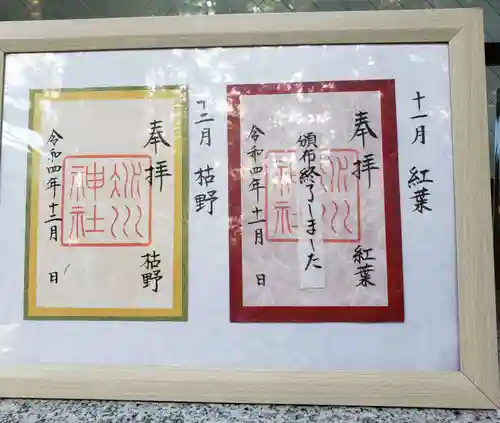 十一月 紅葉
奉拝 紅葉
氷川神社
頒布終了しました
令和四年十一月 日
十二月 枯野
奉拝 枯野
氷川神社
令和四年十二月 日